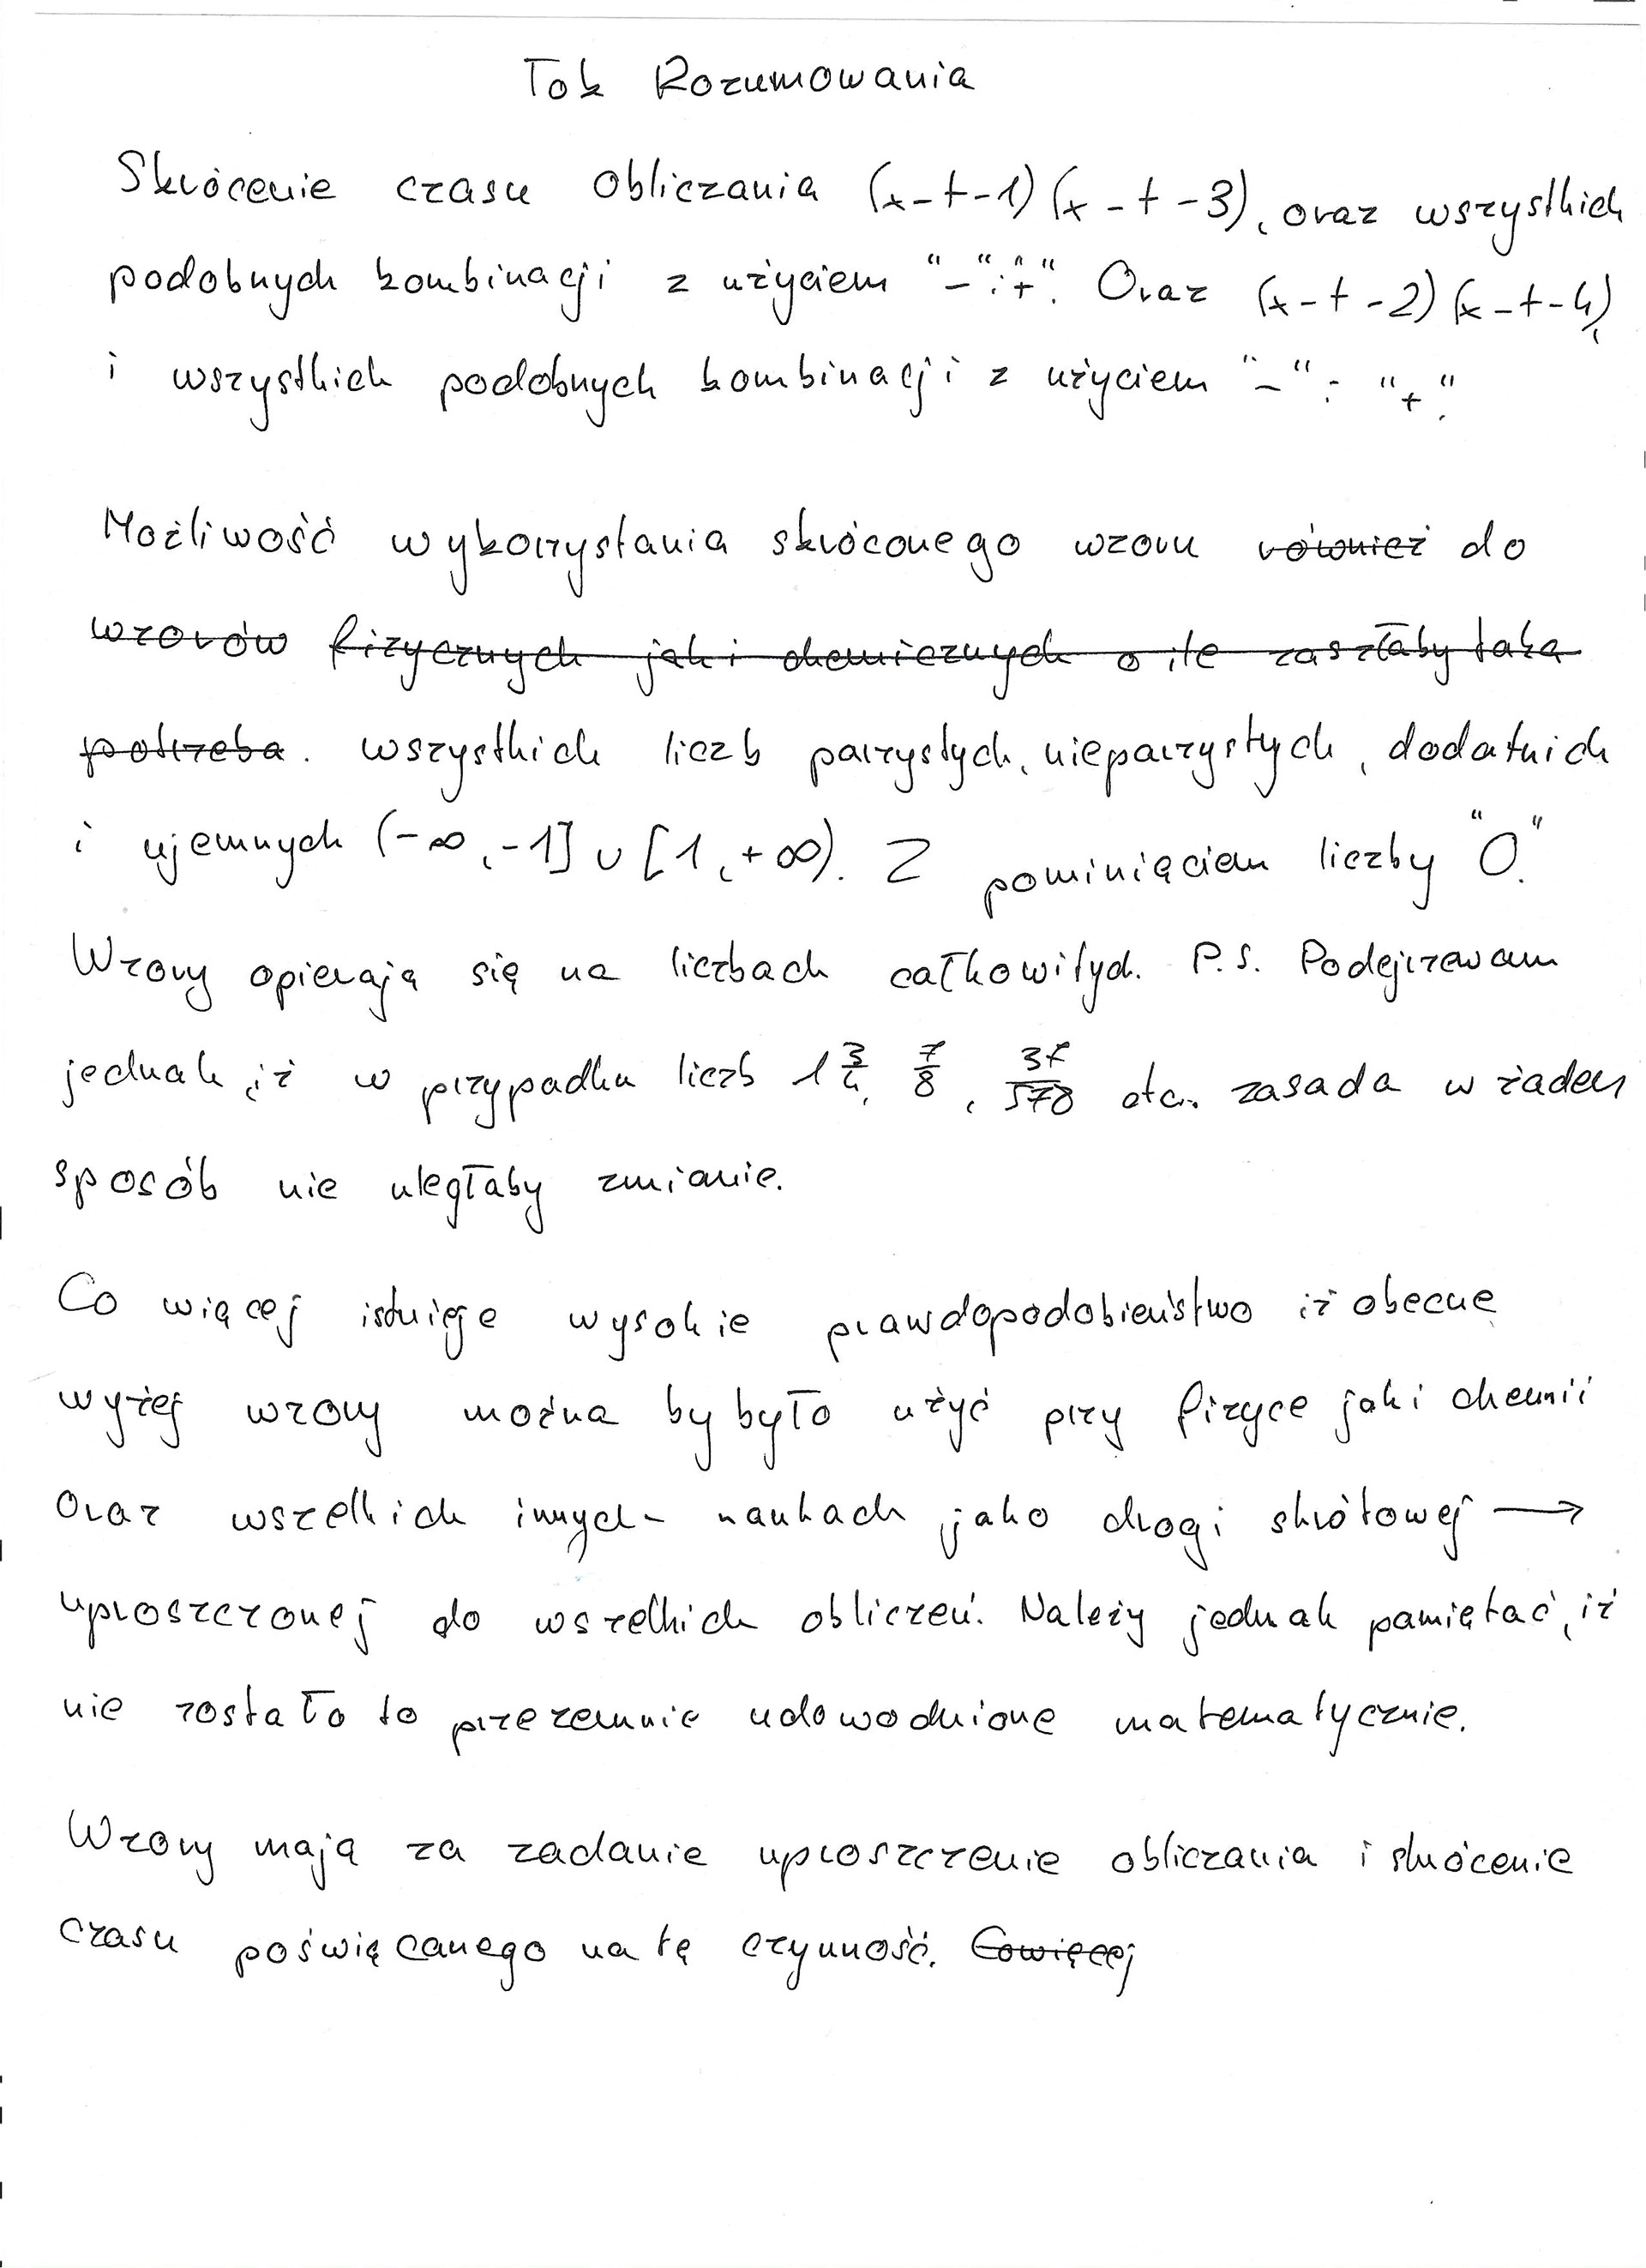 Tok Rozumowania
Skrócenie czasu obliczania (x-t-1)(x-t-3), oraz wszystkich
podobnych kombinacji z użyciem "-" i "+". Oraz (x-t-2)(x-t-4),
i wszystkich podobnych kombinacji z użyciem "-" i "+".
Możliwość wykorzystania skróconego wzoru również do
wzorów fizycznych jak i chemicznych o ile zaszłaby taka
potrzeba. wszystkich liczb parzystych, nieparzystych, dodatnich
i ujemnych (-∞,-1] ∪ [1,+∞). Z pominięciem liczby "0".
Wzory opierają się na liczbach całkowitych. P.S. Podejrzewam
jednak, iż w przypadku liczb 1 3/4, 7/8, 37/578 etc. zasada w żaden
sposób nie uległaby zmianie.
Co więcej istnieje wysokie prawdopodobieństwo iż obecne
wyżej wzory można by było użyć przy fizyce jak i chemii
oraz wszelkich innych naukach jako drogi skrótowej →
uproszczonej do wszelkich obliczeń. Należy jednak pamiętać, iż
nie zostało to przezemnie udowodnione matematycznie.
Wzory mają za zadanie uproszczenie obliczania i skrócenie
czasu poświęcanego na tę czynność. Cowięcej